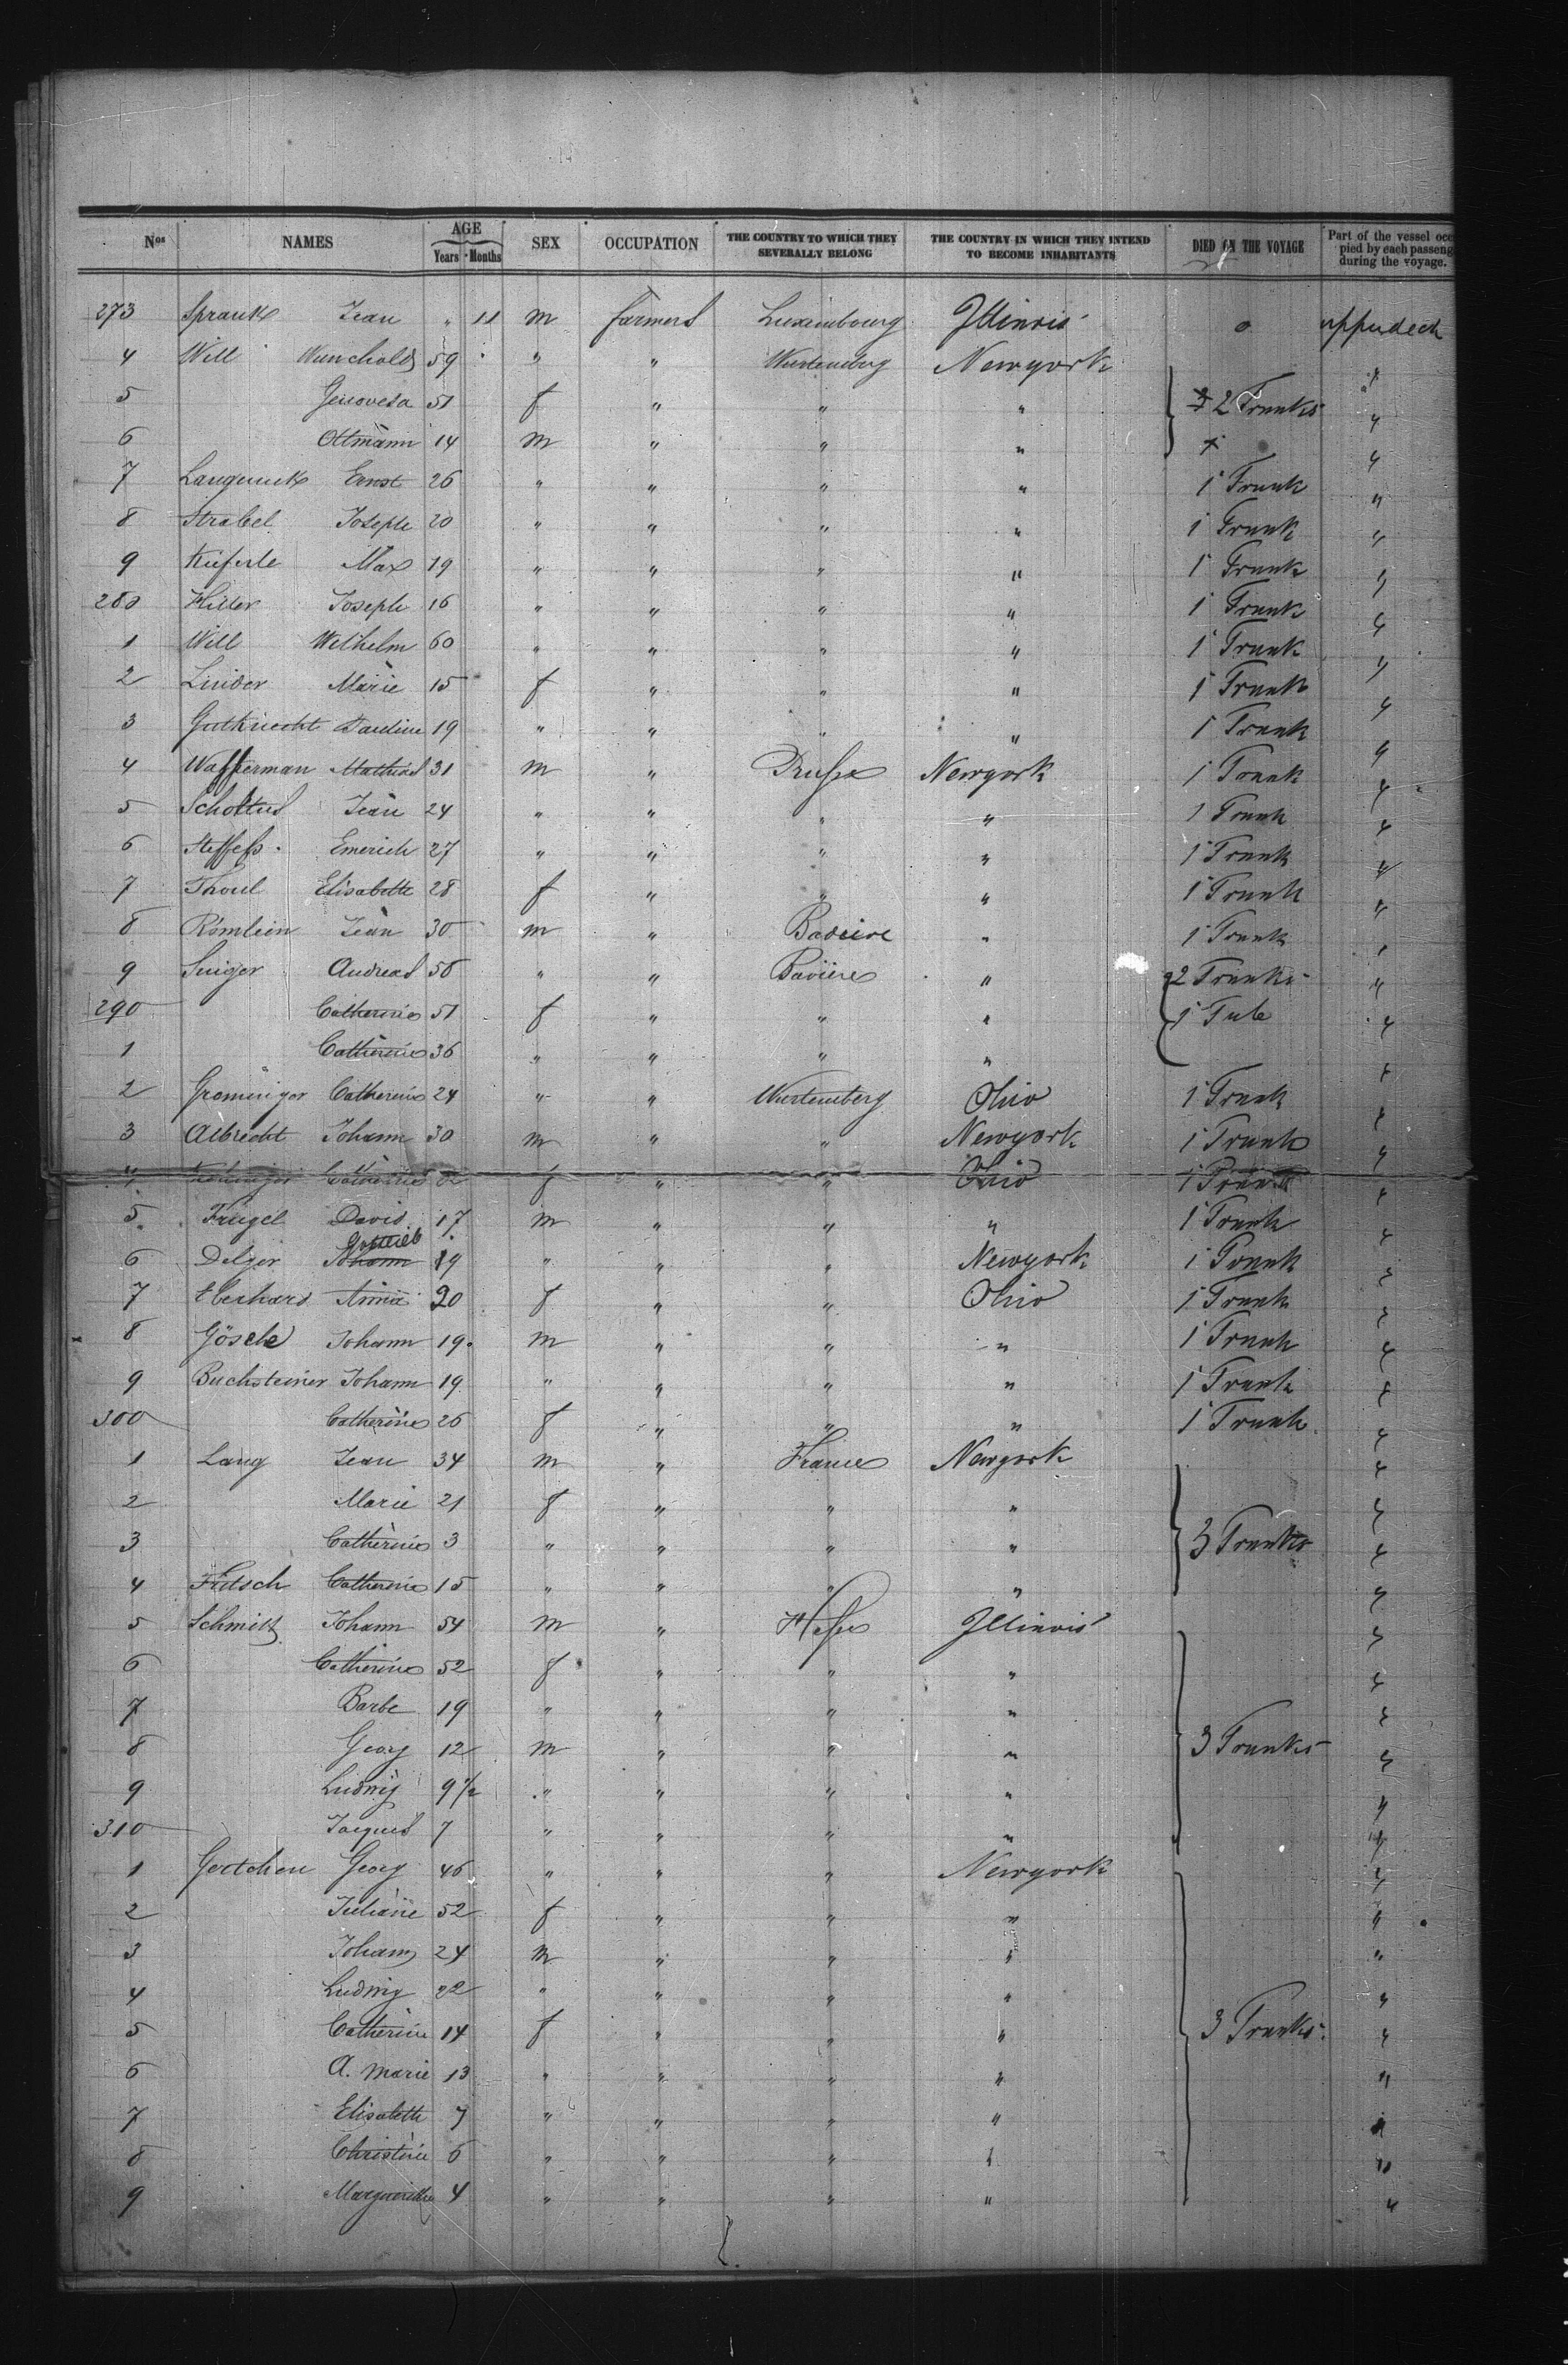 Nos NAMES AGE Years Months SEX OCCUPATION THE COUNTRY TO WHICH THEY SEVERALLY BELONG THE COUNTRY IN WHICH THEY INTEND TO BECOME INHABITANTS DIED ON THE VOYAGE Part of the vessel occupied by each passenger during the voyage.
273 Jean " 11 m farmers Luxembourg Illinois o upperdeck
4 Will 59 " " Wurtemberg Newyork "
5 Genovefa 51 f " " " 2 Trunks "
6 Ottmann 14 m " " " "
7 Ernst 26 " " " " 1 Trunk "
8 Strobel Joseph 20 " " " " 1 Trunk "
9 Kieferle Max 19 " " " " 1 Trunk "
280 Hiller Joseph 16 " " " " 1 Trunk "
1 Will Wilhelm 60 " " " " 1 Trunk "
2 Linder Marie 15 f " " " 1 Trunk "
3 Gutknecht Pauline 19 " " " " 1 Trunk "
4 Wasserman Mathias 31 m " Prusse Newyork 1 Trunk "
5 Scholtus Jean 24 " " " " 1 Trunk "
6 Steffess Emerich 27 " " " " 1 Trunk "
7 Thoul Elisabette 28 f " " " 1 Trunk "
8 Römlein Jean 30 m " " 1 Trunk "
9 Singer Andreas 56 " " Baviere " 2 Trunks "
290 Catherine 51 f " " " 1 Tub "
1 Catherine 36 " " " " "
2 Groninger Catherine 24 " " Wurtemberg Ohio 1 Trunk "
3 Albrecht Johann 30 m " " Newyork 1 Trunk "
4 Catherine f " " Ohio 1 Trunk "
5 David 17 m " " " 1 Trunk "
Gottlieb
6 Delger Johann 19 " " " Newyork 1 Trunk "
7 Eberhard Anna 20 f " " Ohio 1 Trunk "
8 Gösele Johann 19 m " " " 1 Trunk "
9 Buchsteiner Johann 19 " " " " 1 Trunk "
300 Catherine 26 f " " " 1 Trunk "
1 Lang Jean 34 m " France Newyork "
2 Marie 21 f " " " "
3 Catherine 3 " " " " 3 Trunks "
4 Catherine 15 " " " " "
5 Schmitt Johann 54 m " Hesse Illinois "
6 Catherine 52 f " " " "
7 Barbe 19 " " " " "
8 Georg 12 m " " " 3 Trunks "
9 Ludwig 9 1/2 " " " " "
310 Jacques 7 " " " " "
1 Georg 46 " " " Newyork "
2 Juliane 52 f " " " "
3 Johann 24 m " " " "
4 Ludwig 22 " " " " "
5 Catherine 14 f " " " 3 Trunks "
6 A. Marie 13 " " " " "
7 Elisabeth 7 " " " " "
8 Christine 6 " " " " "
9 Marguerithe 4 " " " " "